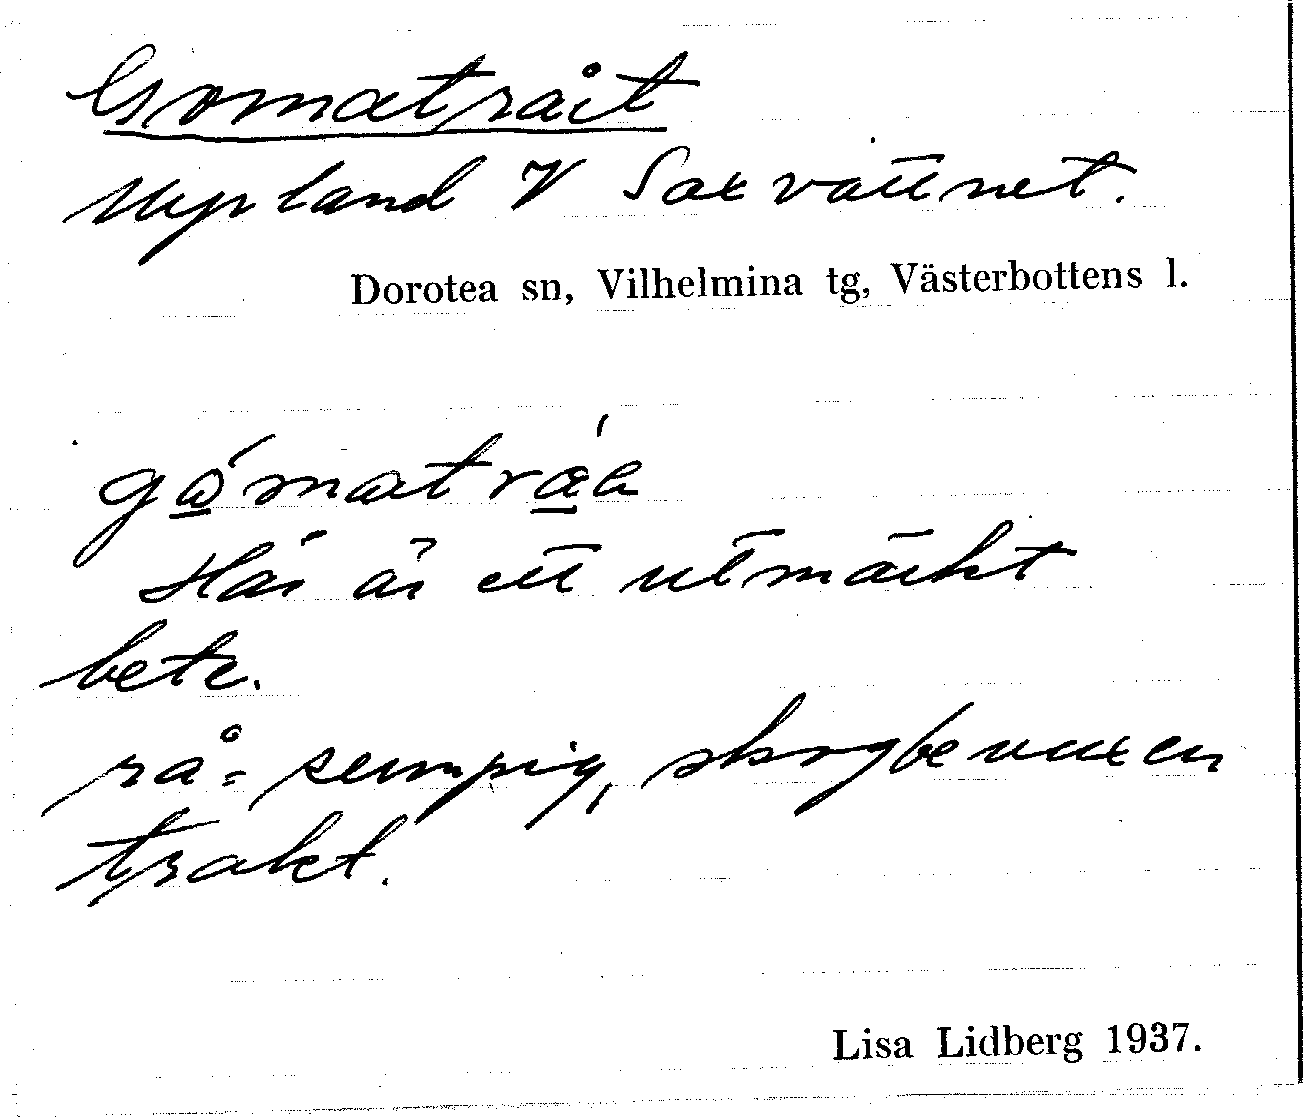 Gomatrået
Uppland V Saxvattnet.
Dorotea sn, Vilhelmina tg, Västerbottens l.
Här är ett utmärkt
bete.
rå = sumpig, skogbevuxen
trakt.
Lisa Lidberg 1937.